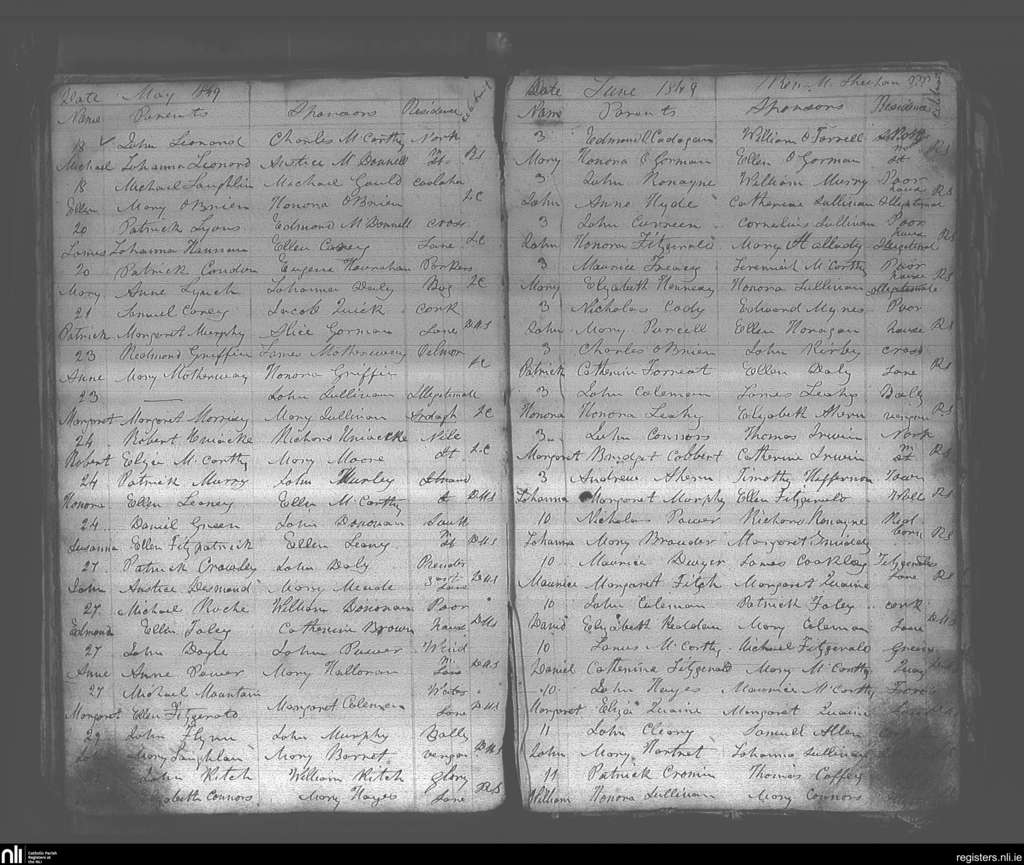 Date May 1849
Name Parents Sponsors Residence
18 John Leonard Charles McCarthy North
Michael Johanna Leonard Anstice McDonnell St RS
18 Michael Laughlin Michael Gauld
Ellen Mary O'Brien Honora O'Brien JC
20 Patrick Lyons Edmond McDonnell cross
James Johanna Hannan Ellen Casey Lane JC
20 Patrick Condon Eugene Hanrahan
Mary Anne Lynch Johanna Daly Bog JC
21 Samuel Carey Jacob Quick cork
Patrick Margaret Murphy Alice Gorman Lane DMS
23 Redmond Griffin James Motherway
Anne Mary Motherway Honora Griffin JC
23 — John Sullivan Illegitimate
Margret Margaret Morrisey Mary Sullivan Ardagh JC
24 Robert Uniacke Richard Uniacke Nile
Robert Eliza McCarthy Mary Moore St JC
24 Patrick Murry John Hurley Strand
Honora Ellen Leaney Ellen McCarthy St DMS
24 Daniel Green John Donovan South
Susanna Ellen Fitzpatrick Ellen Leaney St DMS
27 Patrick Crowley John Daly
John Anstice Desmond Mary Meade Lane DMS
27 Michael Roche William Donovan Poor
Edmond Ellen Foley Catherine Brown house DMS
27 John Doyle John Power Wind
Anne Anne Power Mary Halloran DMS
27 Michael Mountain Water
Margaret Ellen Fitzgerald Margaret Coleman Lane DMS
29 John Flynn John Murphy Bally
Mary Laughlan Mary Barret vergan DMS
John Ritch William Ritch glory
Connors Mary Hayes Lane RS
Date June 1849 Sheehan PP
Name Parents Sponsors Residence
3 Edmond Cadogan William O Farrell
Mary Honora O Gorman Ellen O Gorman St RS
3 John Ronayne William Murry Poor house
John Anne Hyde Catherine Sullivan Illegitimate RS
3 John Curneen Cornelius Sullivan Poor house
John Honora Fitzgerald Mary Hallady Illegitimate RS
3 Maurice Treacy Jeremiah McCarthy Poor house
Mary Elizabeth Hennessy Honora Sullivan Illegitimate RS
3 Nicholas Cody Edward Mynes Poor
John Mary Purcell Ellen Honagan house RS
3 Charles O'Brien John Kirby cross
Patrick Catherine Forrest Ellen Daly Lane RS
3 John Coleman James Leahy Bally
Honora Honora Leahy Elizabeth Ahern vergan RS
3 John Connors Thomas Irwin North
Margaret Bridget Cobbert Catherine Irwin St RS
3 Andrew Ahern Timothy Heffernan Town
Johanna Margaret Murphy Ellen Fitzgerald Walls RS
10 Nicholas Power Richard Ronayne Red
Johanna Mary Browder Margaret RS
10 Maurice Dwyer James Coakley Fitzgeralds
Maurice Margaret Fitch Margaret Quaine Lane RS
10 John Coleman Patrick Foley cork
David Elizabeth Mary Coleman Lane DMS
10 James McCarthy Michael Fitzgerald Green
Daniel Catherine Fitzgerald Mary McCarthy Quay
10 John Hayes Maurice McCarthy
Margaret Eliza Quaine Margaret Quaine
11 John Cleary Samuel Allen
John Mary Hartnet Johanna Sullivan
11 Patrick Cronin Thomas Caffery
William Honora Sullivan Mary Connors
nli Catholic Parish Registers at the NLI
registers.nli.ie